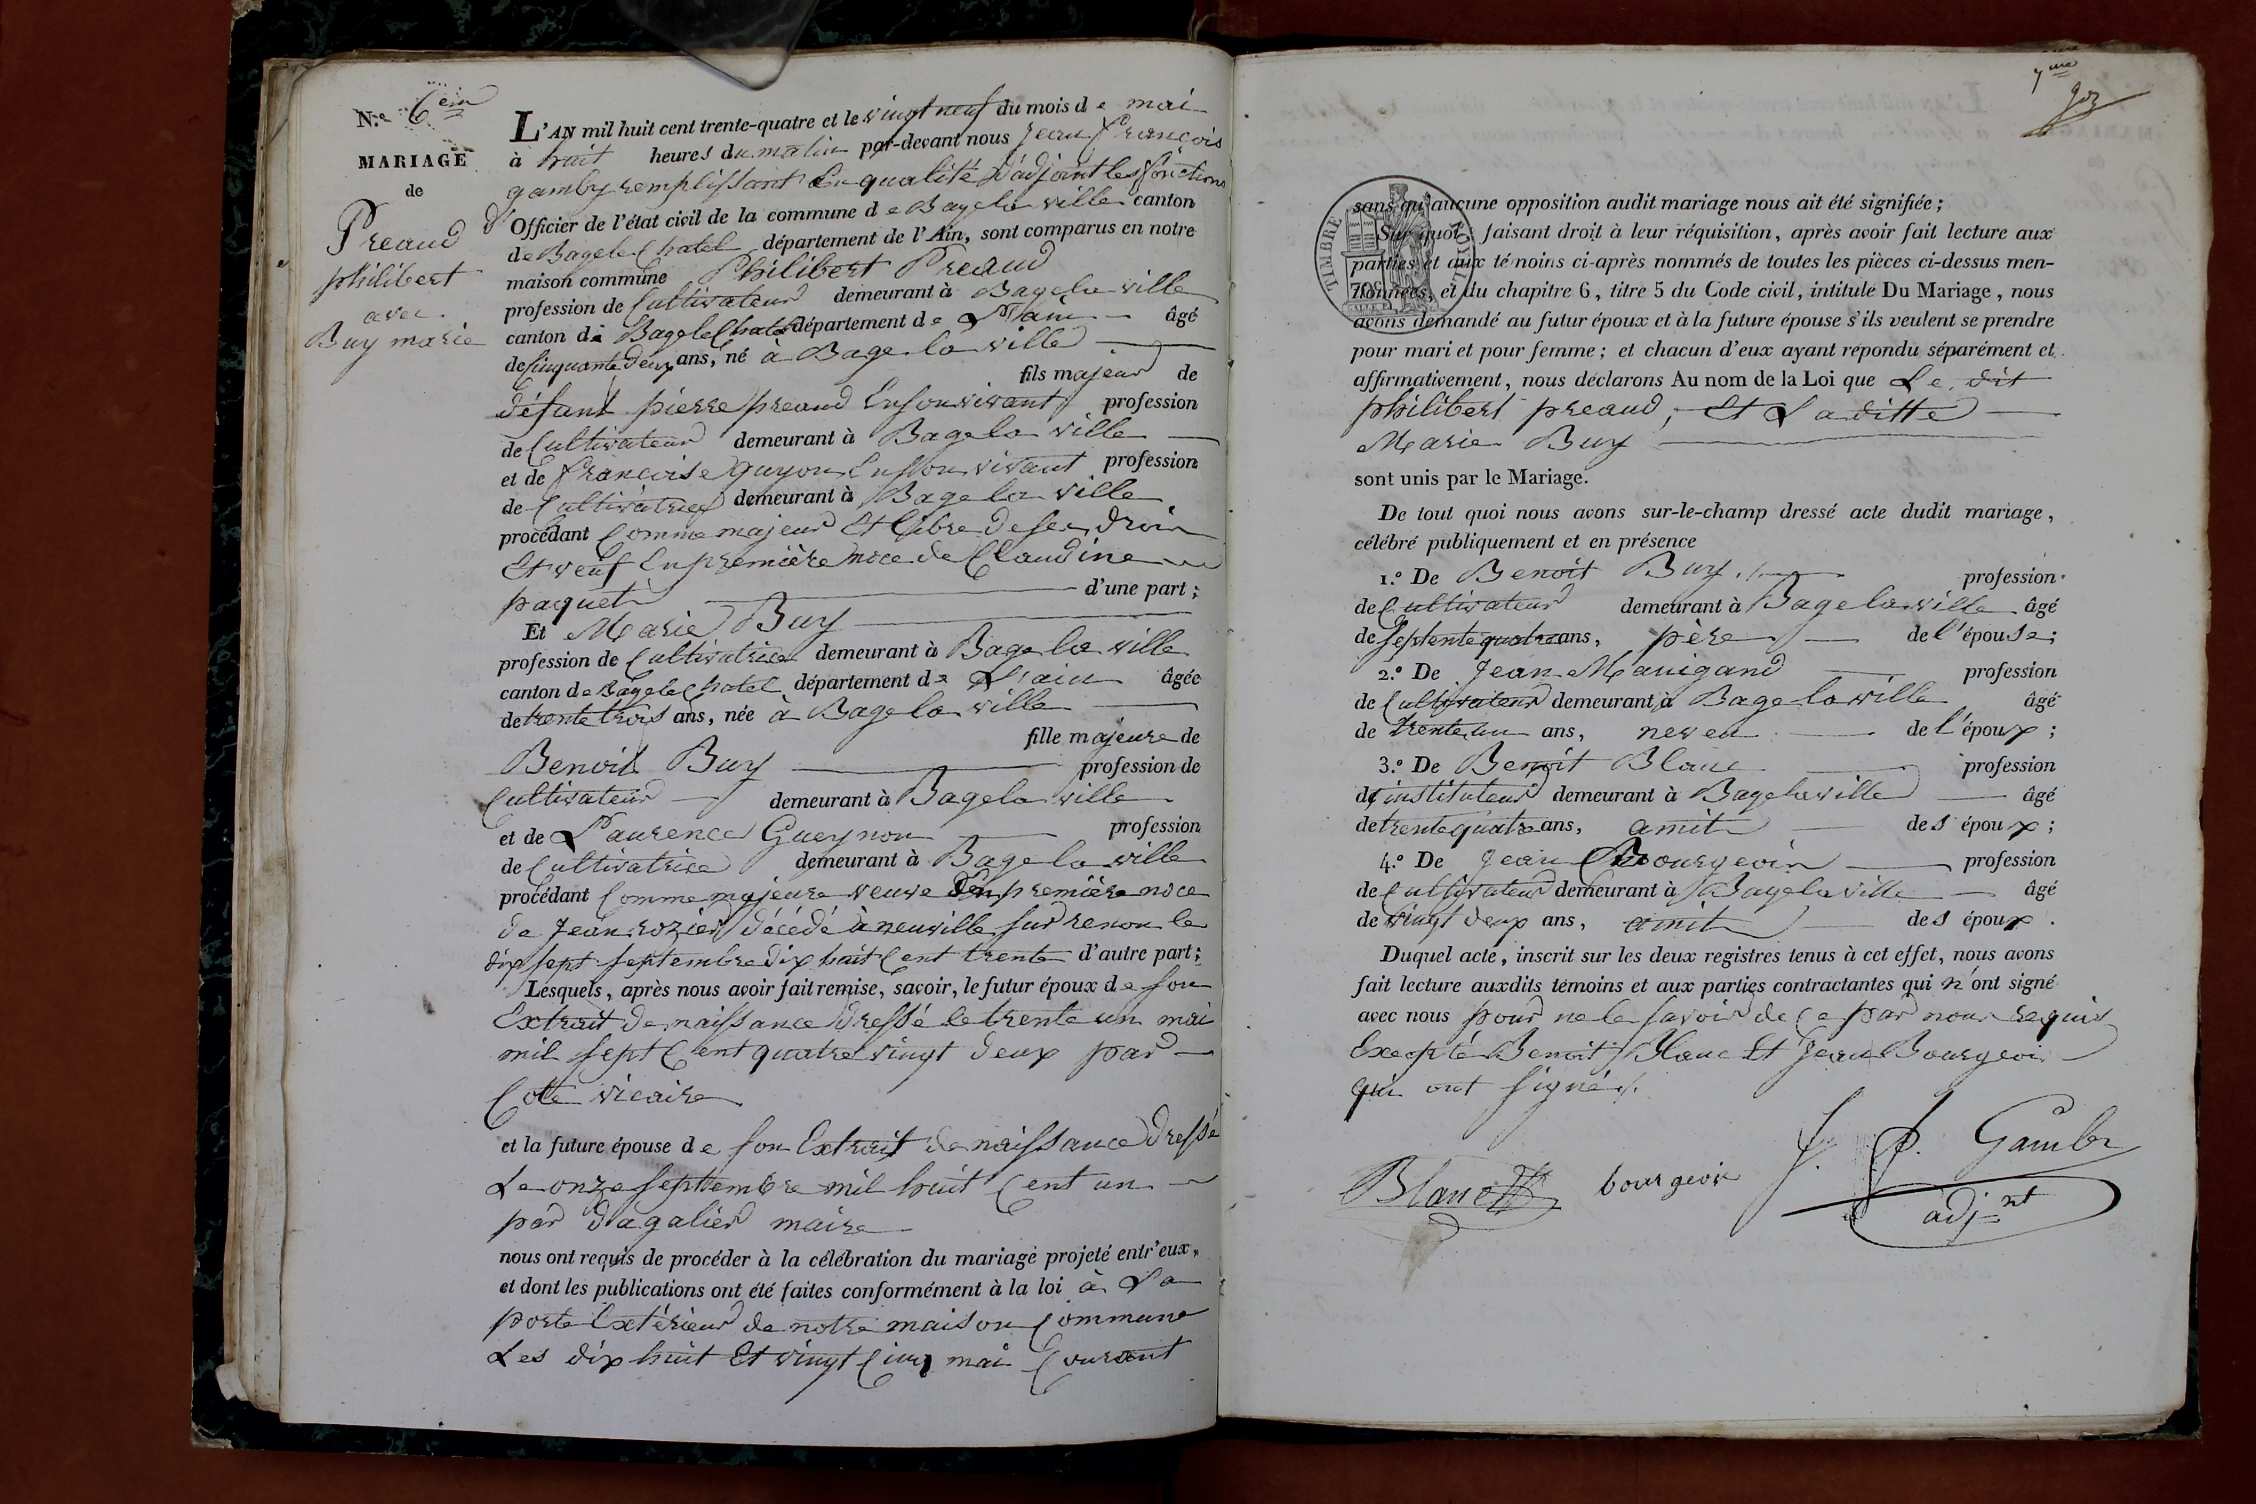 N.º 6em
MARIAGE
de
Preaud
philibert
avec
Buy marie
L'AN mil huit cent trente-quatre et le vingt neuf du mois de mai
à huit heures du matin par-devant nous Jean françois
gamby remplissant En qualité d'adjoint les fonctions
d'Officier de l'état civil de la commune de Bagelaville canton
de Bagelechatel département de l'Ain, sont comparus en notre
maison commune Philibert Preaud
profession de Cultivateur demeurant à Bagelaville
canton de BageleChatel département de L'ain âgé
de Cinquante deux ans, né à Bagelaville
fils majeur de
défunt pierre preaud Enson vivant profession
de Cultivateur demeurant à Bagelaville
et de françoise guyon Enson vivant profession
de Cultivatrice demeurant à Bagelaville
procédant Comme majeur Et libre de ses droir
Et veuf En première noce de Claudine
paquet d'une part;
Et Marie Buy
profession de Cultivatrice demeurant à Bagelaville
canton de Bagelechatel département de L'ain âgée
de trente trois ans, née à Bagelaville
fille majeure de
Benoit Buy profession de
Cultivateur demeurant à Bagelaville
et de Laurence Gueynon profession
de Cultivatrice demeurant à Bagelaville
procédant Comme majeure veuve En première noce
de Jean rozier décédé à neuville sur renon le
dix sept septembre dix huit Cent trente d'autre part;
Lesquels, après nous avoir fait remise, savoir, le futur époux de son
Extrait de naissance dressé le trente un mai
mil sept Cent quatre vingt deux par
Cote vicaire
et la future épouse de son Extrait de naissance dressé
Le onze septembre mil huit Cent un
par dagalier maire
nous ont requis de procéder à la célébration du mariage projeté entr'eux,
et dont les publications ont été faites conformément à la loi à La
porte Extérieur de notre maison Commune
Les dix huit Et vingt Cinq mai Courant
7me
goz
TIMBRE ROYAL
sans qu'aucune opposition audit mariage nous ait été signifiée;
Sur quoi, faisant droit à leur réquisition, après avoir fait lecture aux
parties et aux témoins ci-après nommés de toutes les pièces ci-dessus men-
tionnées, et du chapitre 6, titre 5 du Code civil, intitulé Du Mariage, nous
avons demandé au futur époux et à la future épouse s'ils veulent se prendre
pour mari et pour femme; et chacun d'eux ayant répondu séparément et
affirmativement, nous déclarons Au nom de la Loi que Le dit
philibert preaud, Et La ditte
Marie Buy
sont unis par le Mariage.
De tout quoi nous avons sur-le-champ dressé acte dudit mariage,
célébré publiquement et en présence
1.º De Benoit Buy profession
de Cultivateur demeurant à Bagelaville âgé
de septente quatre ans, père de l'épouse;
2.º De Jean Mauigand profession
de Cultivateur demeurant à Bagelaville âgé
de trente un ans, neveu de l'époux;
3.º De Benoit Blanc profession
de instituteur demeurant à Bagelaville âgé
de trente quatre ans, amit des époux;
4.º De Jean Bourgeoir profession
de Cultivateur demeurant à Bagelaville âgé
de vingt deux ans, amit des époux.
Duquel acte, inscrit sur les deux registres tenus à cet effet, nous avons
fait lecture auxdits témoins et aux parties contractantes qui n'ont signé
avec nous pour ne le savoir de Ce par nous requis
Excepté Benoit Blanc Et Jean Bourgeois
qui ont signé
Blanc
bourgeois
J. f. Gamby
adjnt